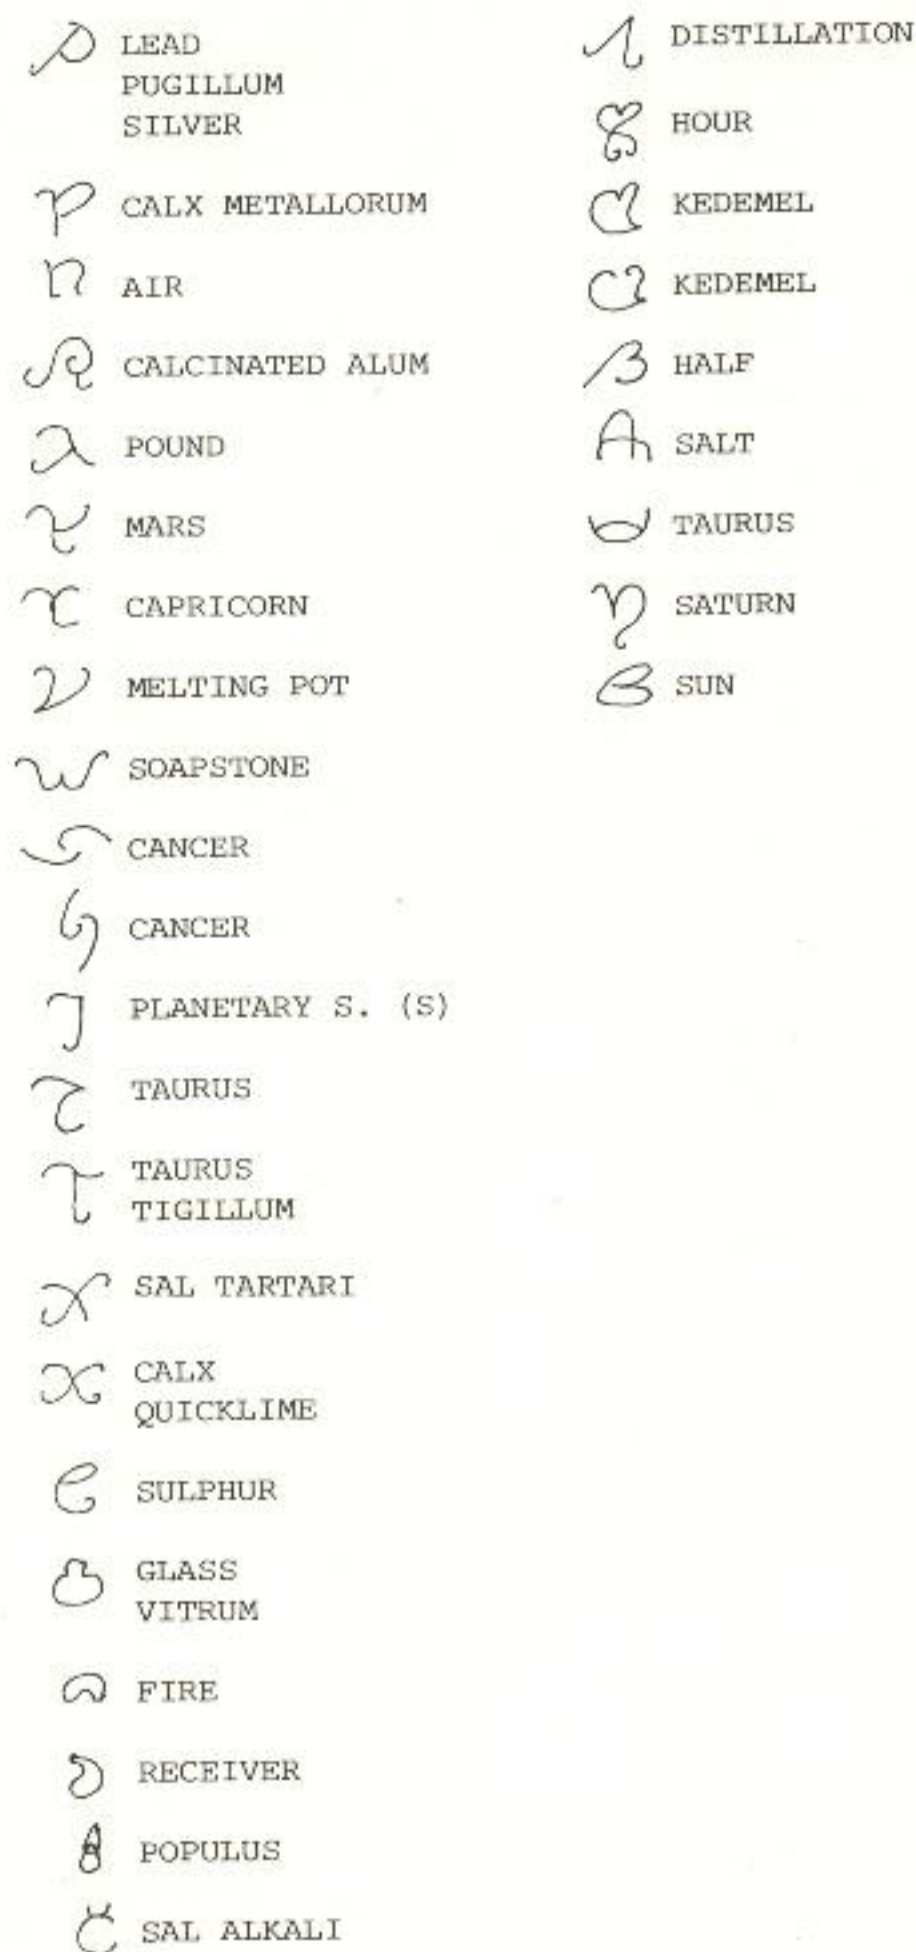 LEAD
PUGILLUM
SILVER
CALX METALLORUM
AIR
CALCINATED ALUM
POUND
MARS
CAPRICORN
MELTING POT
SOAPSTONE
CANCER
CANCER
PLANETARY S. (S)
TAURUS
TAURUS
TIGILLUM
SAL TARTARI
CALX
QUICKLIME
SULPHUR
GLASS
VITRUM
FIRE
RECEIVER
POPULUS
SAL ALKALI
DISTILLATION
HOUR
KEDEMEL
KEDEMEL
HALF
SALT
TAURUS
SATURN
SUN